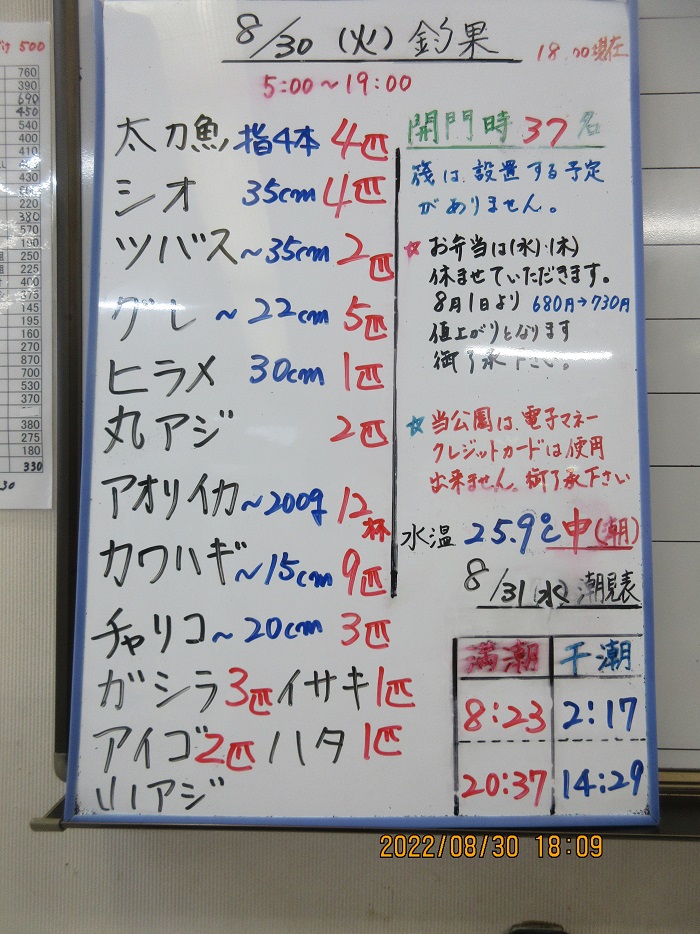 8/30 (火) 釣果
18:00現在
5:00～19:00
太刀魚 指4本 4匹
シオ 35cm 4匹
ツバス ～35cm 2匹
グレ ～22cm 5匹
ヒラメ 30cm 1匹
丸アジ 2匹
アオリイカ ～200g 12杯
カワハギ ～15cm 9匹
チャリコ ～20cm 3匹
ガシラ 3匹 イサキ 1匹
アイゴ 2匹 ハタ 1匹
小アジ
開門時 37名
筏は、設置する予定
がありません。
☆ お弁当は(水)・(木)
休ませていただきます。
8月1日より 680円→730円
値上がりとなります
御了承下さい。
☆ 当公園は、電子マネー
クレジットカードは使用
出来ません。御了承下さい
水温 25.9℃ 中(朝)
8/31(水) 潮見表
満潮 干潮
8:23 2:17
20:37 14:29
500
760
390
690
450
540
400
410
220
380
570
190
250
225
400
375
145
195
160
270
870
700
530
370
380
275
180
330
30
2022/08/30 18:09